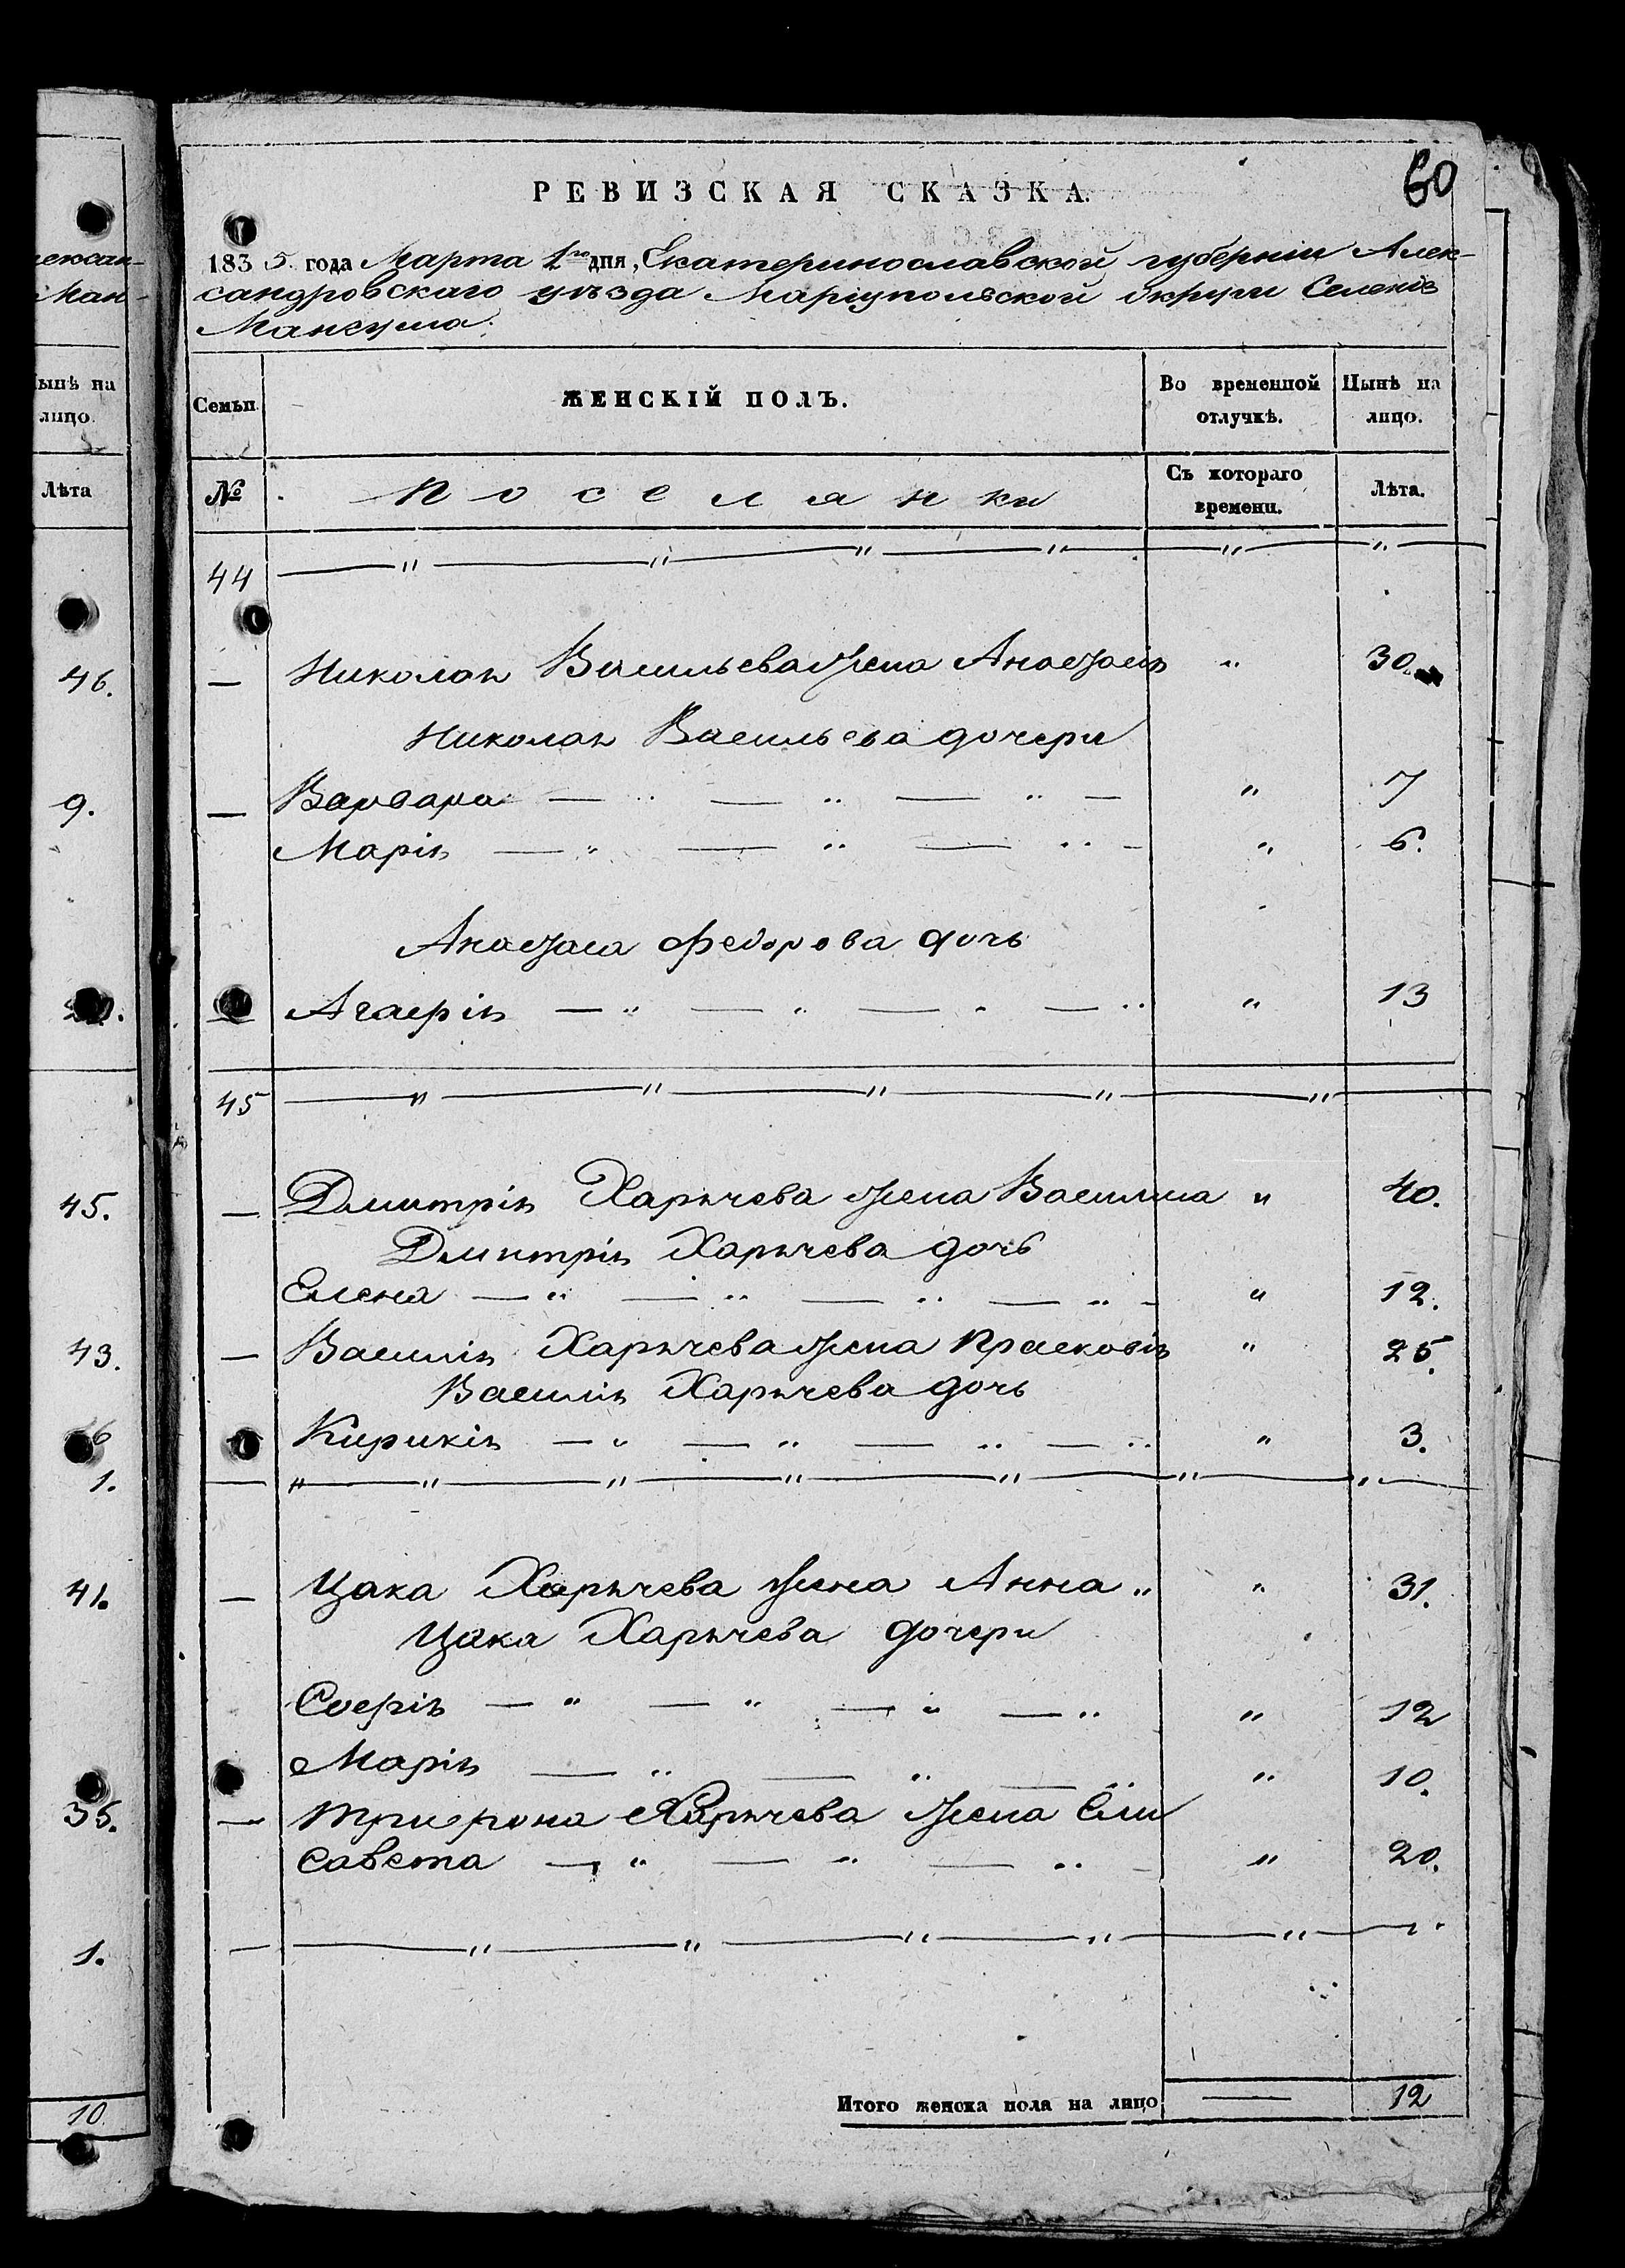 60
РЕВИЗСКАЯ СКАЗКА.
1835 года Марта 1го дня, Екатеринославской губерніи Алек-
сандровскаго уѣзда Маріупольской округи Селенія
Мангуша.
Семьи ЖЕНСКІЙ ПОЛЪ. Во временной отлучкѣ. Нынѣ на лицо.
№ Поселянки Съ котораго времени. Лѣта.
44 " " " " " "
— Николая Васильева жена Анастасія " 30
Николая Васильева дочери
— Варвара — " — " — " — " 7
Марія — " — " — " — " 6.
Анастаса Федорова дочь
— Агафія — " — " — " — " " 13
45 — " — " — " — " — " —
— Дмитрія Харычева жена Василиса " 40.
Дмитрія Харычева дочь
Елена — " — " — " — " — " 12.
— Василія Харычева жена Прасковія " 25.
Василія Харычева дочь
Кирикія — " — " — " — " " 3.
— " — " — " — " — " — " — " —
— Цака Харычева жена Анна " " 31.
Цака Харычева дочери
Софія — " — " — " — " " 12
Марія — " — " — " " 10.
— Трифона Харычева жена Ели
савета — " — " — " — " 20.
— — " — " — " — " — " — "
Итого женска пола на лицо — 12
ексан-
Ман-
Нынѣ на
лицо.
Лѣта
46.
9.
45.
43.
6
1.
41.
35.
1.
10.